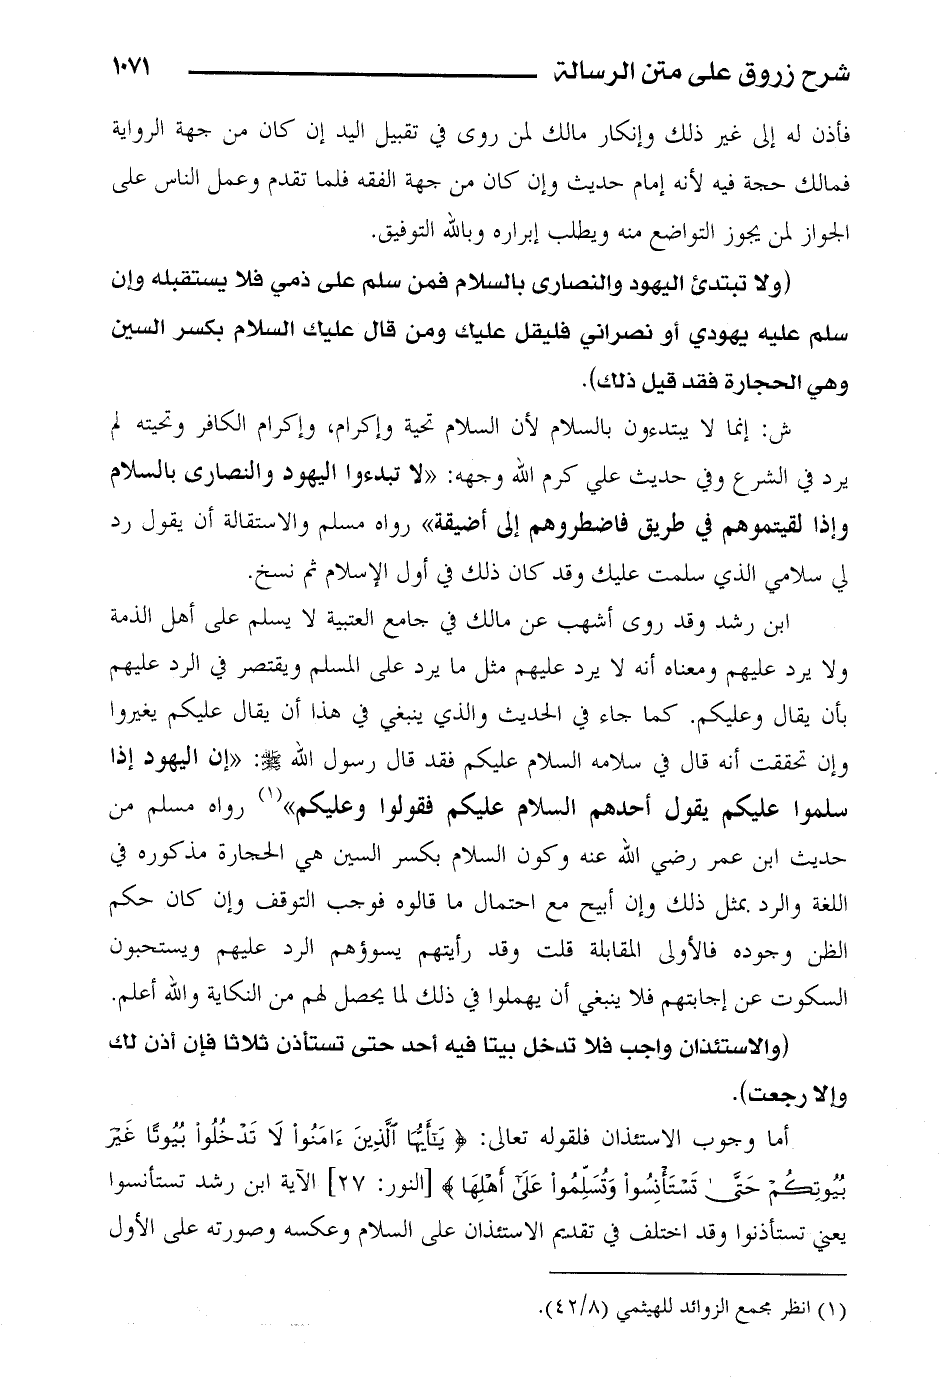 شرح زروق على متن الرسالة ١٠٧١
فأذن له إلى غير ذلك وإنكار مالك لمن روى في تقبيل اليد إن كان من جهة الرواية
فمالك حجة فيه لأنه إمام حديث وإن كان من جهة الفقه فلما تقدم وعمل الناس على
الجواز لمن يجوز التواضع منه ويطلب إبراره وبالله التوفيق.
(ولا تبتدئ اليهود والنصارى بالسلام فمن سلم على ذمي فلا يستقبله وإن
سلم عليه يهودي أو نصراني فليقل عليك ومن قال عليك السلام بكسر السين
وهي الحجارة فقد قيل ذلك).
ش: إنما لا يبتدءون بالسلام لأن السلام تحية وإكرام، وإكرام الكافر وتحيته لم
يرد في الشرع وفي حديث علي كرم الله وجهه: «لا تبدءوا اليهود والنصارى بالسلام
وإذا لقيتموهم في طريق فاضطروهم إلى أضيقة» رواه مسلم والاستقالة أن يقول رد
لي سلامي الذي سلمت عليك وقد كان ذلك في أول الإسلام ثم نسخ.
ابن رشد وقد روى أشهب عن مالك في جامع العتبية لا يسلم على أهل الذمة
ولا يرد عليهم ومعناه أنه لا يرد عليهم مثل ما يرد على المسلم ويقتصر في الرد عليهم
بأن يقال وعليكم. كما جاء في الحديث والذي ينبغي في هذا أن يقال عليكم يغيروا
وإن تحققت أنه قال في سلامه السلام عليكم فقد قال رسول الله ﷺ: «إن اليهود إذا
سلموا عليكم يقول أحدهم السلام عليكم فقولوا وعليكم»(١) رواه مسلم من
حديث ابن عمر رضي الله عنه وكون السلام بكسر السين هي الحجارة مذكوره في
اللغة والرد بمثل ذلك وإن أبيح مع احتمال ما قالوه فوجب التوقف وإن كان حكم
الظن وجوده فالأولى المقابلة قلت وقد رأيتهم يسوؤهم الرد عليهم ويستحبون
السكوت عن إجابتهم فلا ينبغي أن يهملوا في ذلك لما يحصل لهم من النكاية والله أعلم.
(والاستئذان واجب فلا تدخل بيتا فيه أحد حتى تستأذن ثلاثا فإن أذن لك
وإلا رجعت).
أما وجوب الاستئذان فلقوله تعالى: ﴿ يَٰٓأَيُّهَا ٱلَّذِينَ ءَامَنُواْ لَا تَدْخُلُواْ بُيُوتًا غَيْرَ
بُيُوتِكُمْ حَتَّىٰ تَسْتَأْنِسُواْ وَتُسَلِّمُواْ عَلَىٰٓ أَهْلِهَا ﴾ [النور: ٢٧] الآية ابن رشد تستأنسوا
يعني تستأذنوا وقد اختلف في تقديم الاستئذان على السلام وعكسه وصورته على الأول
(١) انظر مجمع الزوائد للهيثمي (٤٢/٨).